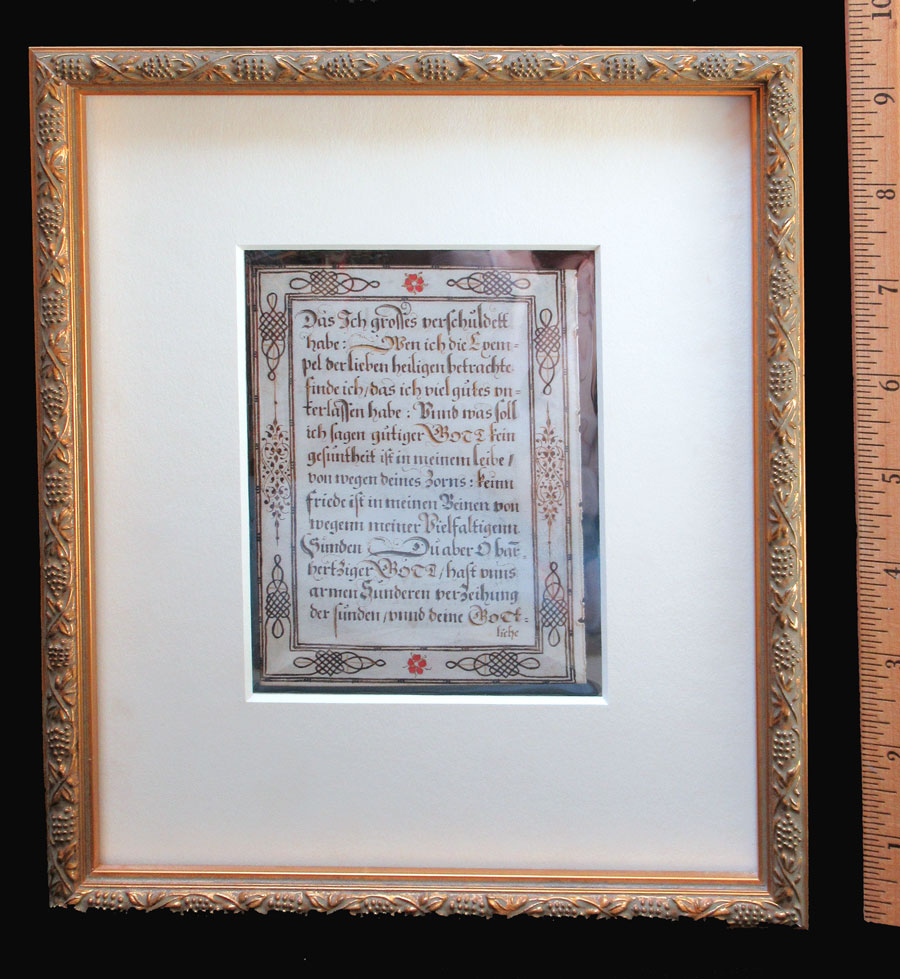 Das Ich grosses verschuldett
habe: Wen ich die Exem=
pel der lieben heiligen betrachte
finde ich/das ich viel gutes vn=
terlassen habe: Vnnd was soll
ich sagen gutiger GOTT kein
gesuntheit ist in meinem leibe/
von wegen deines Zorns: keinn
friede ist in meinen Beinen von
wegenn meiner Vielfaltigenn
Sünden Du aber O bar̄=
hertziger GOTT/hast vnns
armen Sünderen verzeihung
der sünden/vnnd deine GOTt=
liche
10
9
8
7
6
5
4
3
2
1